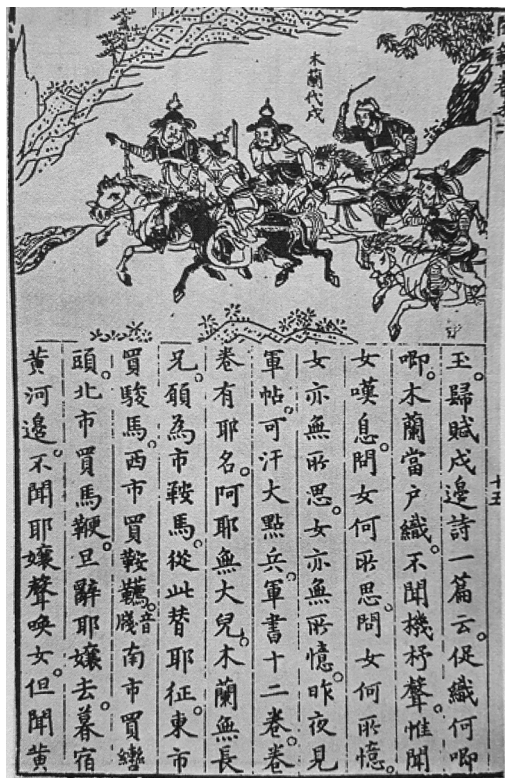 木蘭代戍
十五
玉。歸賦戍邊詩一篇云。促織何唧
唧。木蘭當户織。不聞機杼聲。惟聞
女嘆息。問女何所思。問女何所憶。
女亦無所思。女亦無所憶。昨夜見
軍帖。可汗大點兵。軍書十二卷。卷
卷有耶名。阿耶無大兒。木蘭無長
兄。願為市鞍馬。從此替耶征。東市
買駿馬。西市買鞍韉。音牋南市買轡
頭。北市買馬鞭。旦辭耶孃去。暮宿
黃河邉。不聞耶孃聲喚女。但聞黃